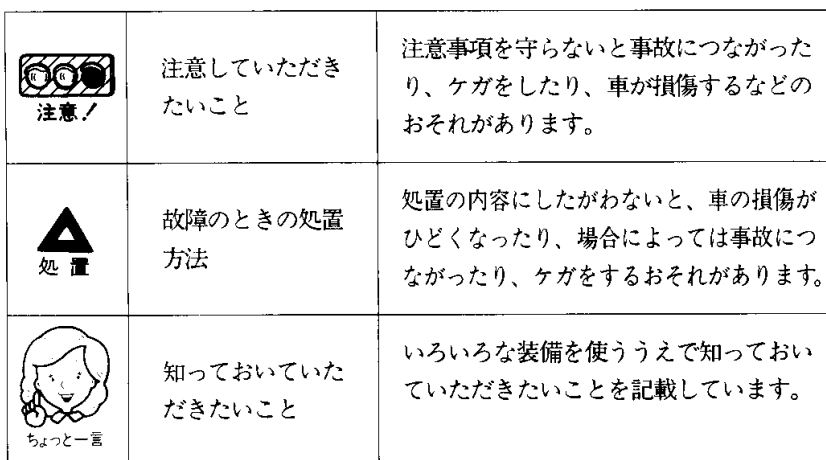 注意!
注意していただき
たいこと
注意事項を守らないと事故につながった
り、ケガをしたり、車が損傷するなどの
おそれがあります。
処置
故障のときの処置
方法
処置の内容にしたがわないと、車の損傷が
ひどくなったり、場合によっては事故につ
ながったり、ケガをするおそれがあります。
ちょっと一言
知っておいていた
だきたいこと
いろいろな装備を使ううえで知っておい
ていただきたいことを記載しています。